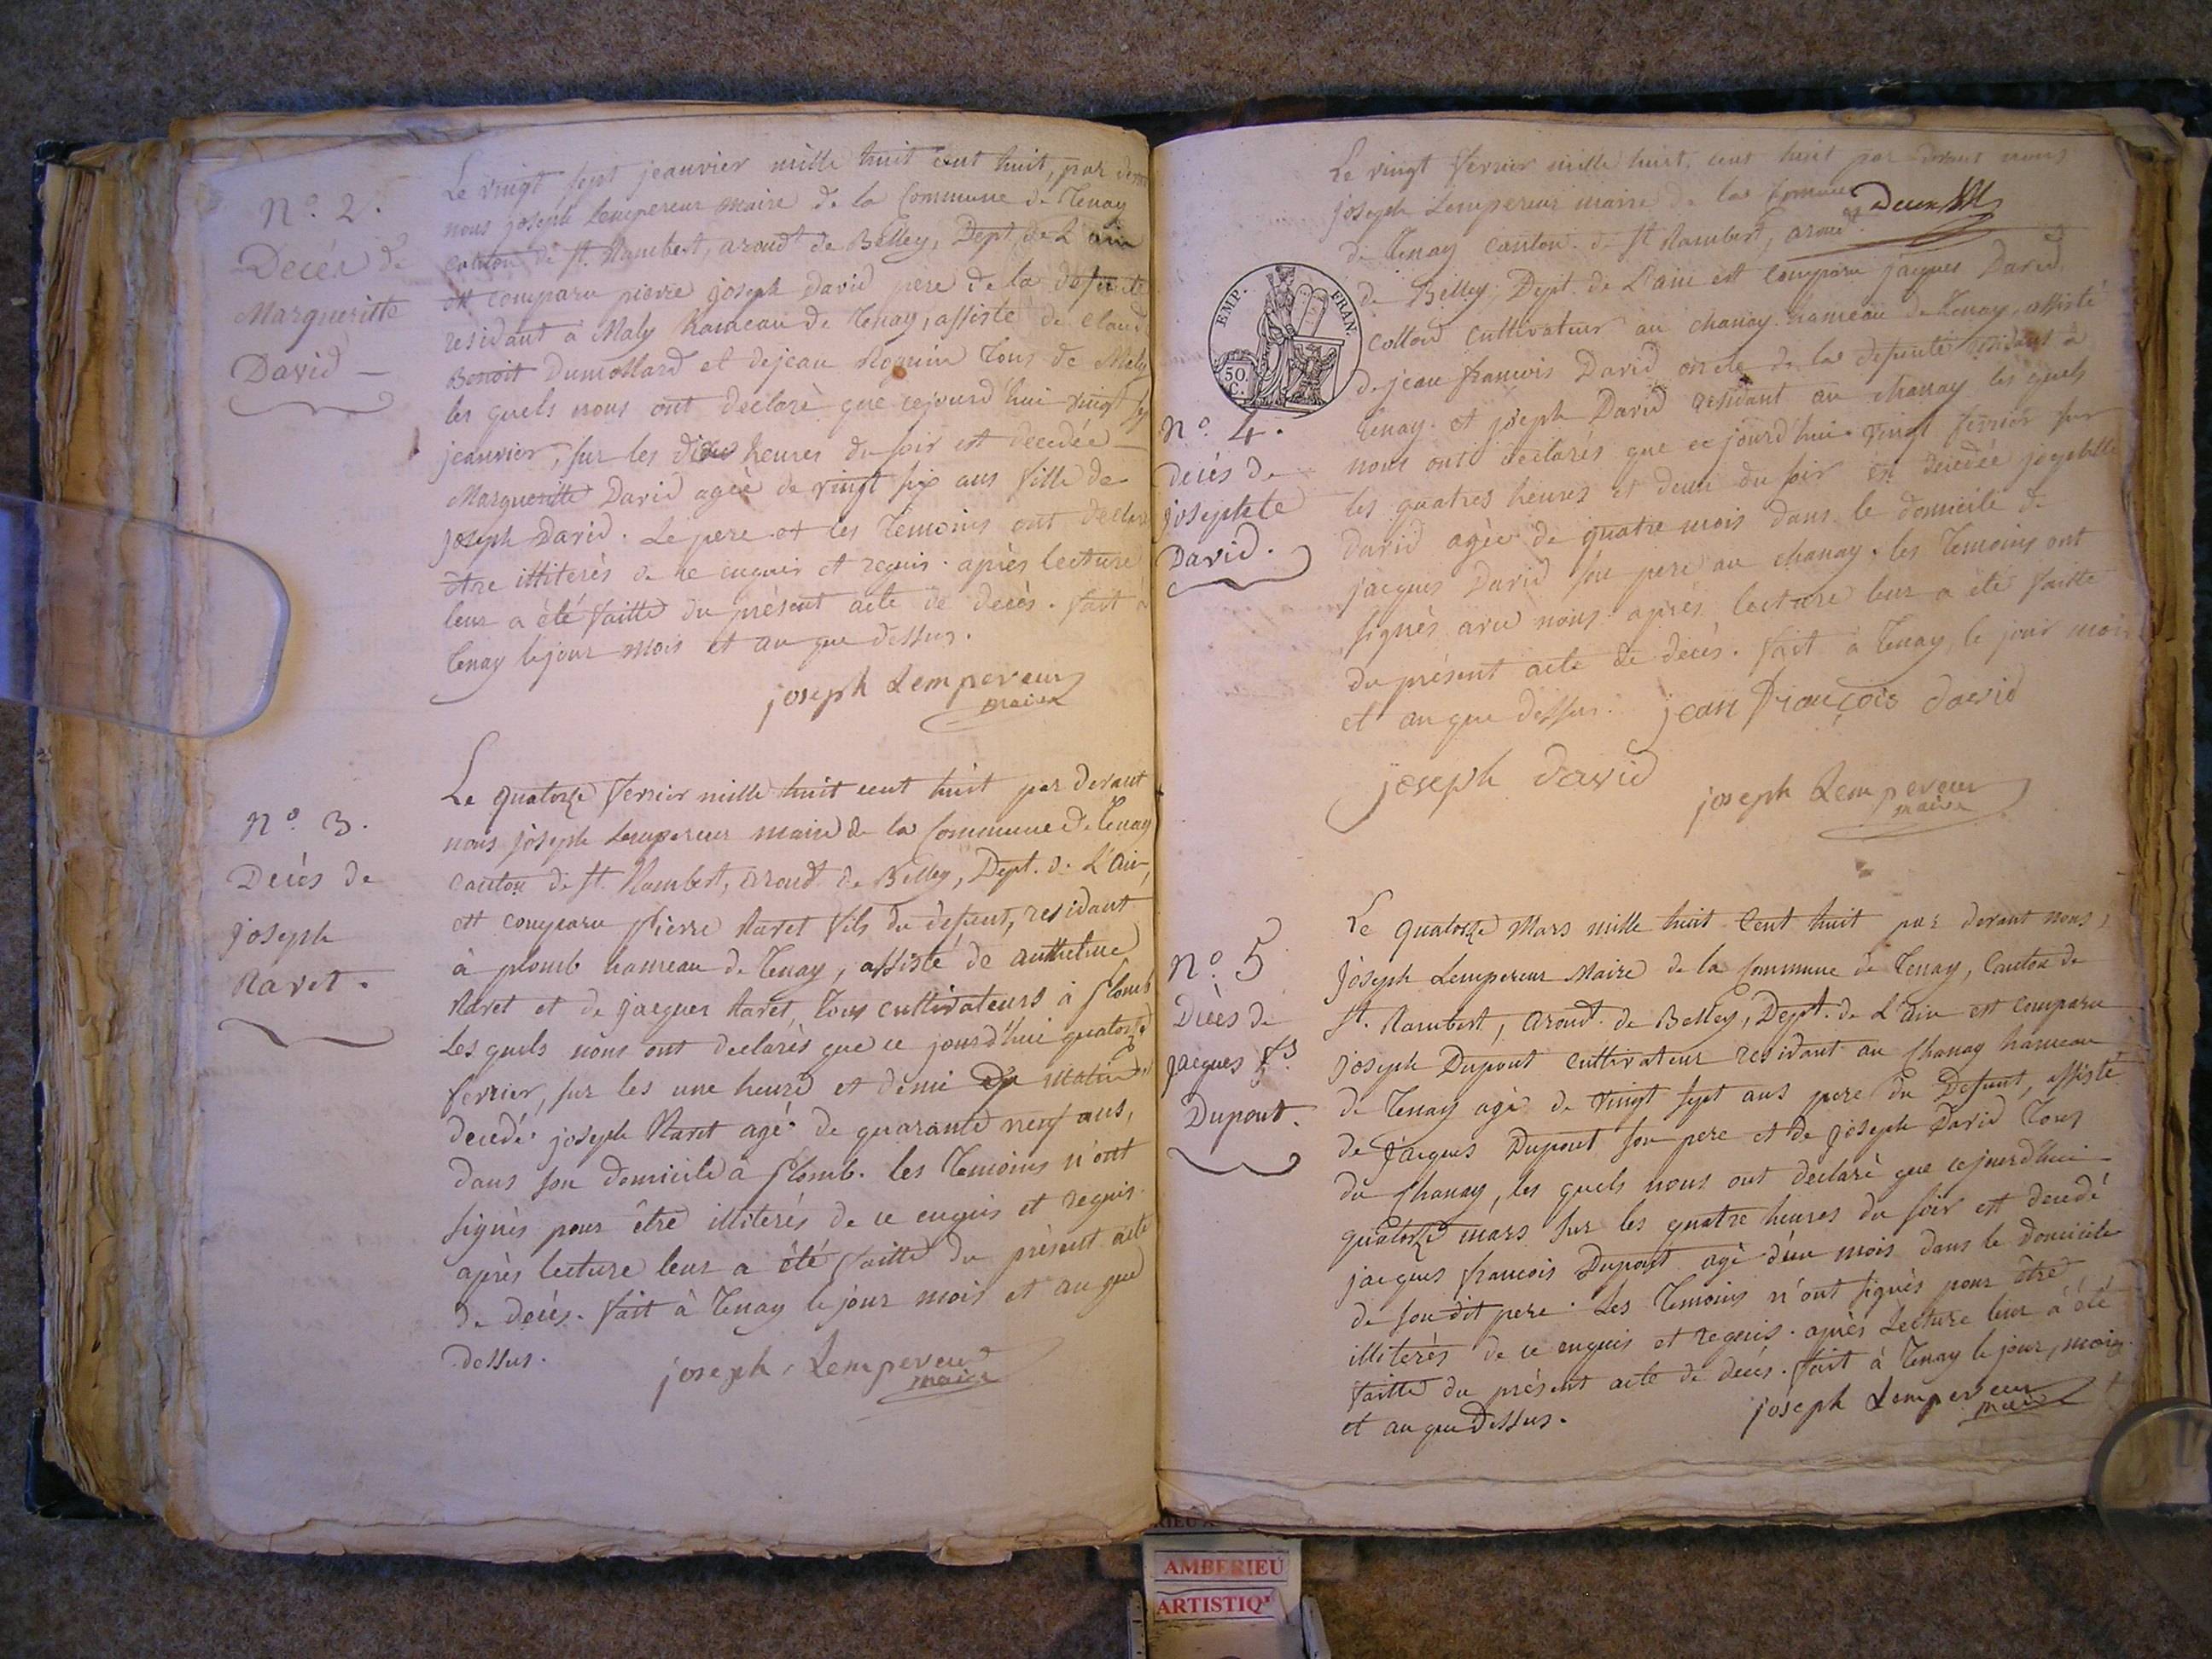 N.o 2.
Decés de
Margueritte
David
Le vingt sept jeanvier mille huit cent huit, par devant
nous joseph Lempereur maire de la Commune de Tenay
canton de St. Rambert, arond.t de Belley, Dept. de L'ain
est comparu pierre joseph David pere de la defunte
residant à Maly hameau de Tenay, assisté de claude
Benoit Dumollard et de jean Roguin tous de Maly
les quels nous ont declaré que cejourd'hui vingt sept
jeanvier, sur les dix heures du soir est decedée
Margueritte David agée de vingt six ans fille de
joseph David. Le pere et les temoins ont declaré
être illiterés de ce enquis et requis. après lecture
leur a été faitte du présent acte de decès. fait à
Tenay le jour mois et an que dessus.
joseph Lempereur
maire
N.o 3.
Decès de
joseph
Ravet.
Le quatorze fevrier mille huit cent huit par devant
nous joseph Lempereur maire de la Commune de Tenay
canton de St. Rambert, arond.t de Belley, Dept. de L'ain,
est comparu pierre Ravet fils du défunt, residant
à plomb hameau de Tenay, assisté de anthelme
Ravet et de jacques Ravet, tous cultivateurs à plomb
Les quels nous ont declarés que ce jourd'hui quatorze
fevrier, sur les une heure et demi du matin est
decedé joseph Ravet agé de quarante neuf ans,
dans son domicile à plomb. les temoins n'ont
signés pour être illiterés de ce enquis et requis.
après lecture leur a été faitte du présent acte
de decés. fait à Tenay le jour mois et an que
dessus.
joseph Lempereur
maire
EMP. FRAN.
50 C.
N.o 4.
decés de
josephte
David.
Le vingt fevrier mille huit cent huit par devant nous
joseph Lempereur maire de la Commune
de Tenay canton de St Rambert, arond.t
de Belley, Dept. de L'ain est comparu jacques David
cultivateur au chanay hameau de Tenay, assisté
de jean francois David oncle de la defunte residant à
Tenay et joseph David residant au chanay les quels
nous ont declarés que ce jourd'hui vingt fevrier sur
les quatres heures et demi du soir est decedée josephte
David agée de quatre mois dans le domicile de
jacques David son pere au chanay. les temoins ont
signés avec nous après lecture leur a été faitte
du présent acte de decés. fait à Tenay, le jour mois
et an que dessus. jean François david
joseph david
joseph Lempereur
maire
N.o 5
Décès de
jacques f.s
Dupont.
Le quatorze Mars mille huit Cent huit par devant nous,
Joseph Lempereur Maire de la Commune de Tenay, Canton de
St. Rambert, arond.t de Belley, Dept. de L'ain est comparu
Joseph Dupont cultivateur residant au Chanay hameau
de Tenay agé de vingt sept ans pere du Defunt, assisté
de Jacques Dupont son pere et de joseph David tous
du Chanay, les quels nous ont declaré que cejourd'hui
quatorze mars sur les quatre heures du soir est decedé
jacques francois Dupont agé d'un mois dans le domicile
de son dit pere. Les temoins n'ont signés pour être
illiterés de ce enquis et requis. après Lecture leur a été
faitte du présent acte de decés. fait à Tenay le jour, mois
et an que Dessus.
joseph Lempereur
maire
AMBERIEU
ARTISTIQ